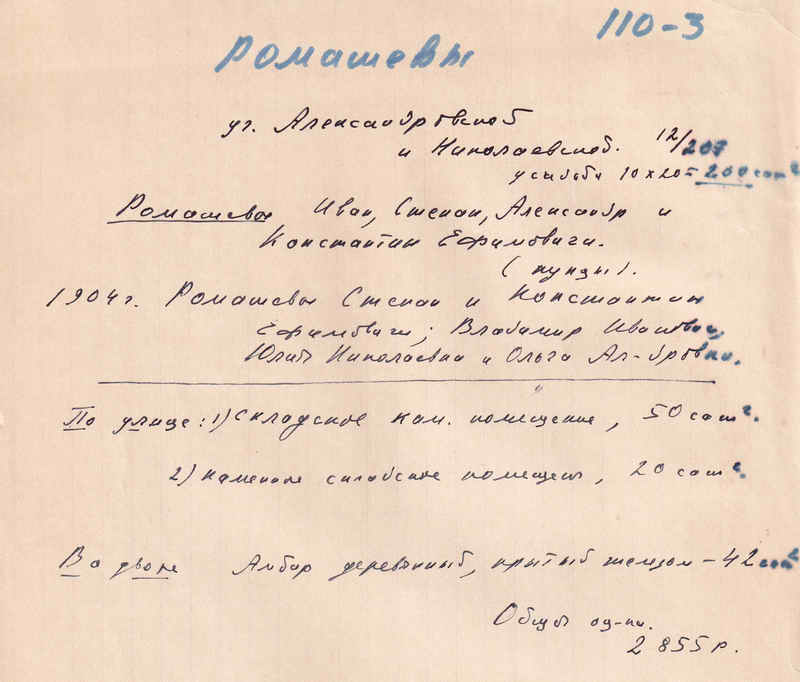 110-3
Ромашевы
уг. Александровской
и Николаевской. 12/207
усадьба 10 x 20 = 200 саж²
Ромашевы Иван, Степан, Александр и
Константин Ефимовичи.
(купцы).
1904 г. Ромашевы Степан и Константин
Ефимовичи; Владимир Иванович,
Юлия Николаевна и Ольга Ал-дровна.
По улице: 1) складское кам. помещение, 50 саж².
2) каменное складское помещен, 20 саж².
Во дворе Амбар деревянный, крытый железом – 42 саж²
Общая оц-ка.
2 855 р.